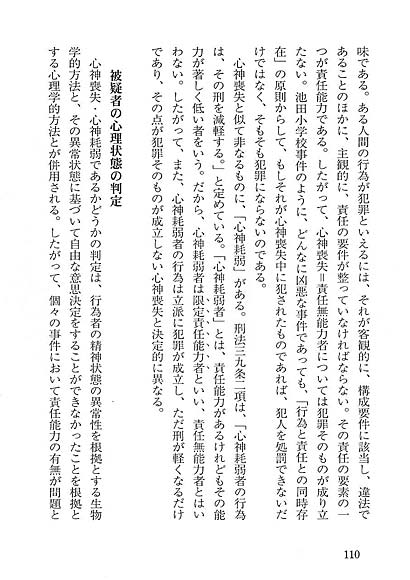 味である。ある人間の行為が犯罪といえるには、それが客観的に、構成要件に該当し、違法で
あることのほかに、主観的に、責任の要件が整っていなければならない。その責任の要素の一
つが責任能力である。したがって、心神喪失＝責任無能力者については犯罪そのものが成り立
たない。池田小学校事件のように、どんなに凶悪な事件であっても、「行為と責任との同時存
在」の原則からして、もしそれが心神喪失中に犯されたものであれば、犯人を処罰できないだ
けではなく、そもそも犯罪にならないのである。
心神喪失と似て非なるものに、「心神耗弱」がある。刑法三九条二項は、「心神耗弱者の行為
は、その刑を減軽する。」と定めている。「心神耗弱者」とは、責任能力があるけれどもその能
力が著しく低い者をいう。だから、心神耗弱者は限定責任能力者といい、責任無能力者とはい
わない。したがって、また、心神耗弱者の行為は立派に犯罪が成立し、ただ刑が軽くなるだけ
であり、その点が犯罪そのものが成立しない心神喪失と決定的に異なる。
被疑者の心理状態の判定
心神喪失・心神耗弱であるかどうかの判定は、行為者の精神状態の異常性を根拠とする生物
学的方法と、その異常状態に基づいて自由な意思決定をすることができなかったことを根拠と
する心理学的方法とが併用される。したがって、個々の事件において責任能力の有無が問題と
110